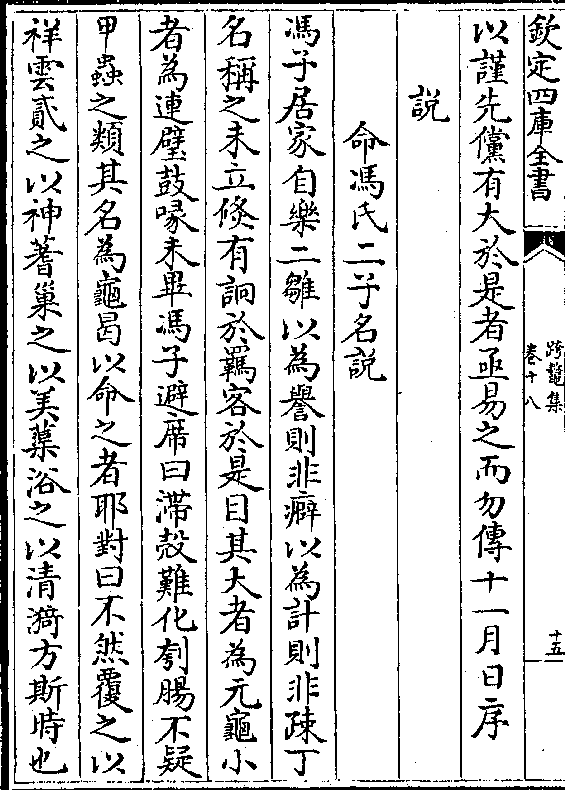 欽定四庫全書
跨鼇集
卷十八
十五
以謹先儻有大於是者亟易之而勿傳十一月日序
説
命馮氏二子名説
馮子居家自樂二雛以為譽則非癖以為計則非疎丁
名稱之未立倐有詗於羈客於是目其大者為元龜小
者為連璧鼓喙未畢馮子避席曰滯殻難化刳腸不疑
甲蟲之類其名為龜曷以命之者耶對曰不然覆之以
祥雲貳之以神蓍巢之以美蕖浴之以清漪方斯時也